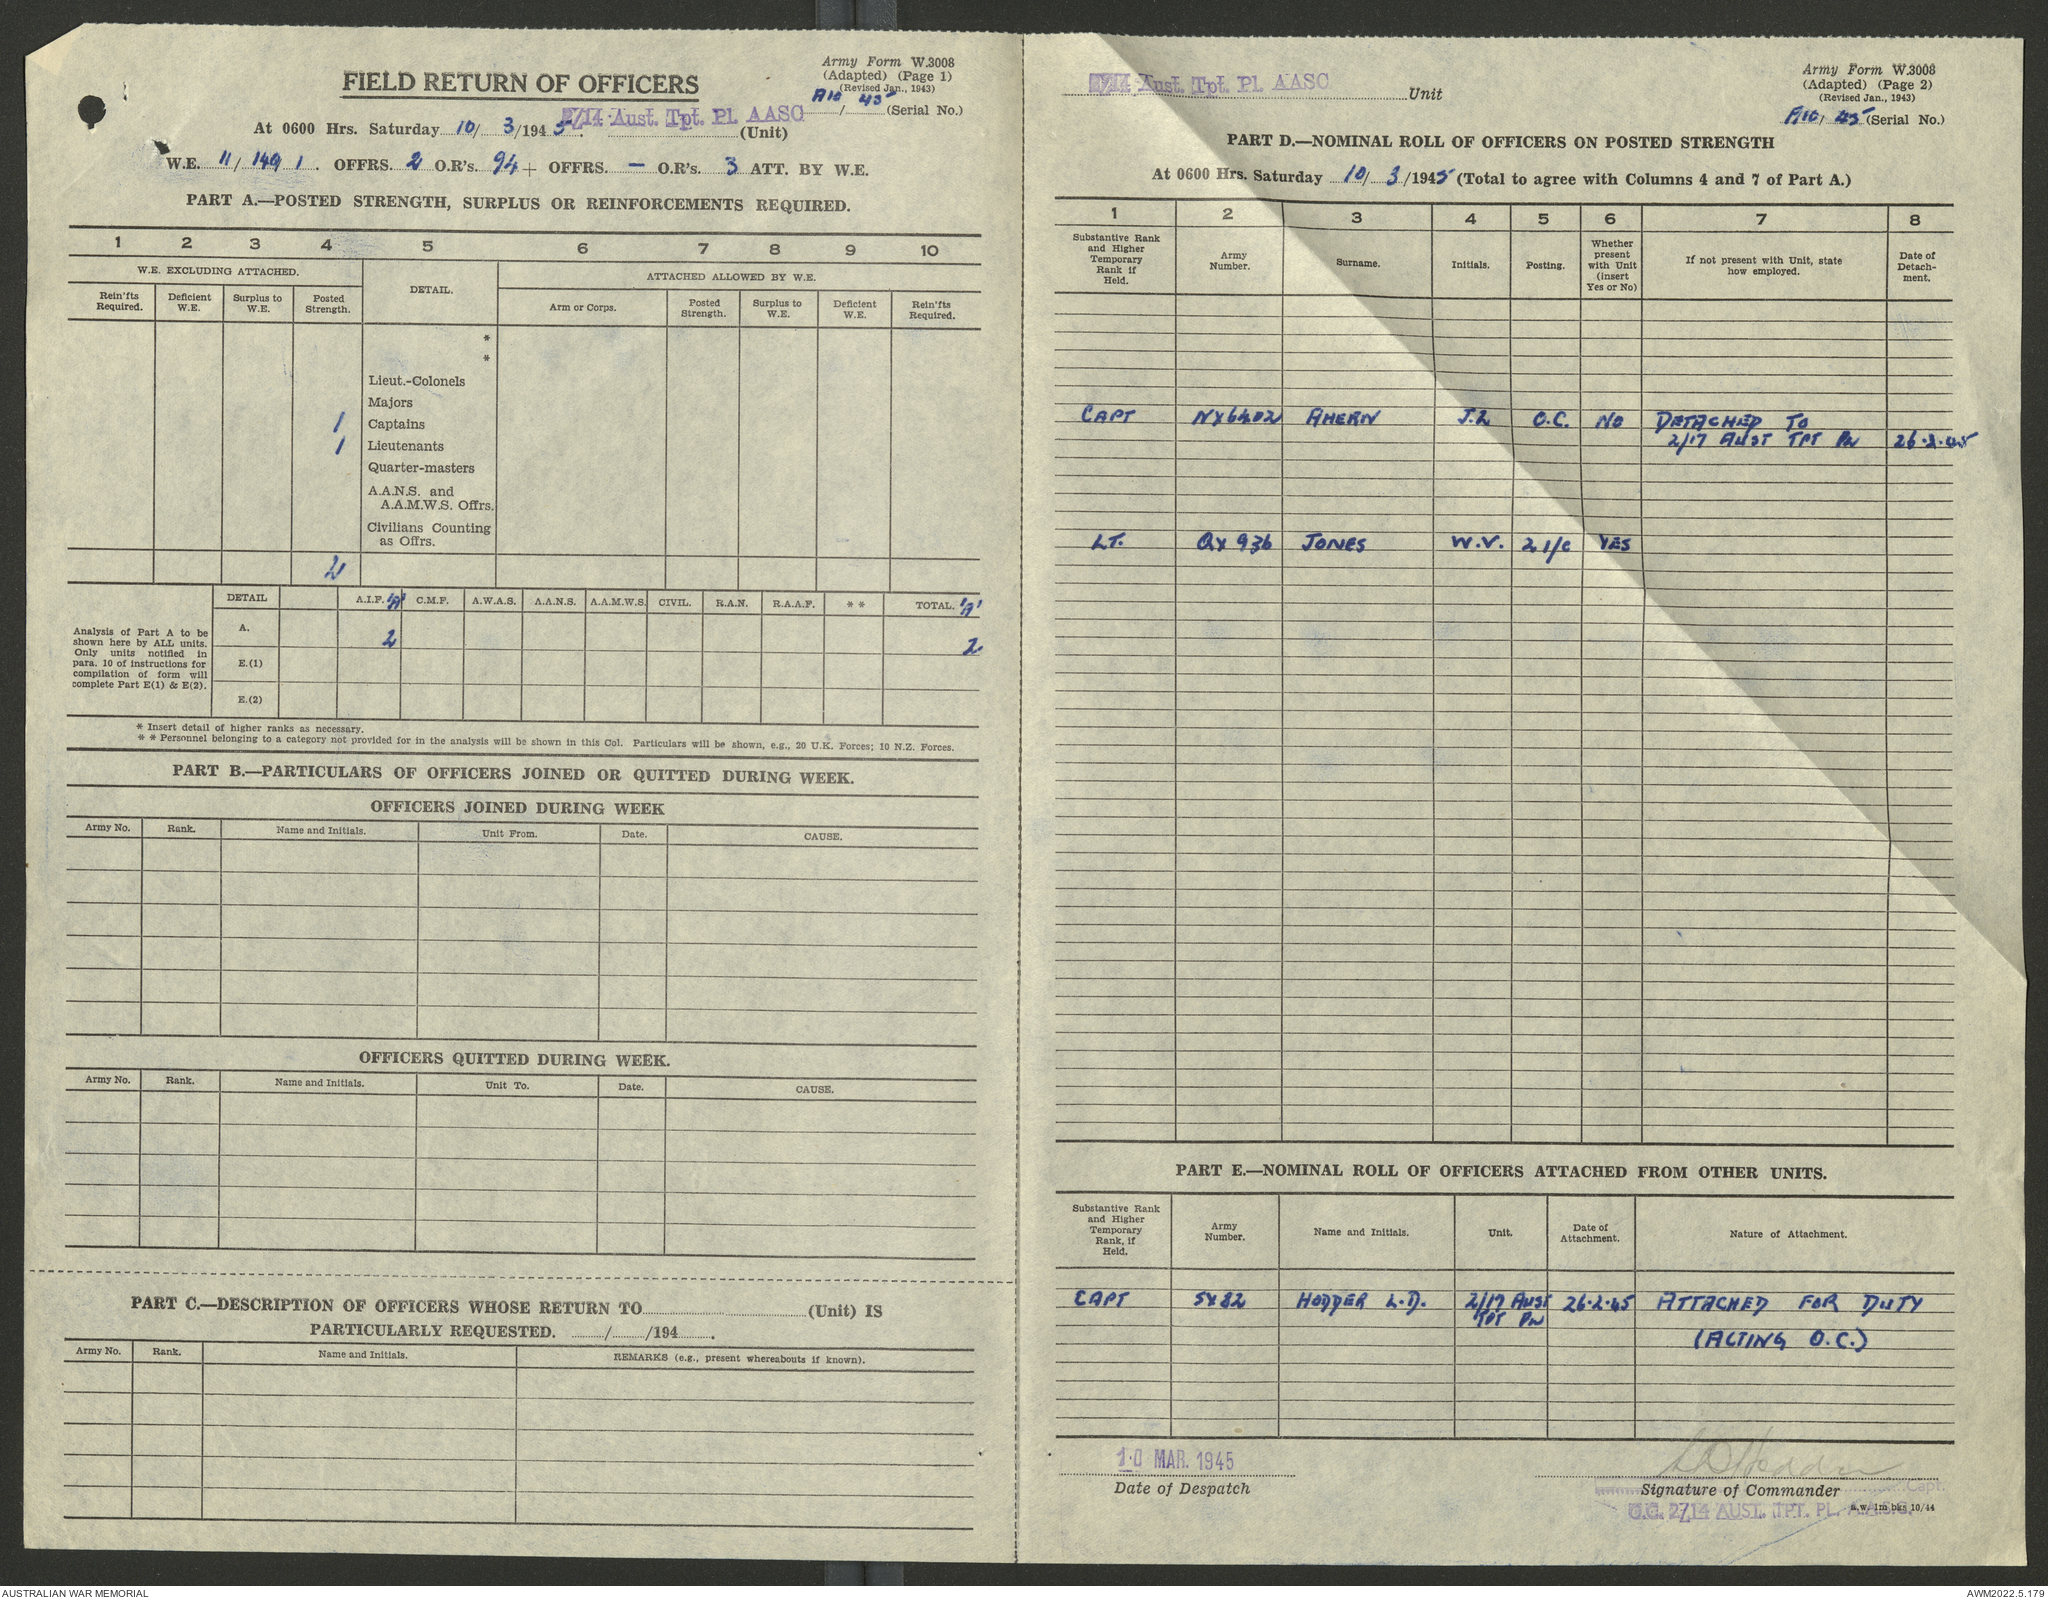 FIELD RETURN OF OFFICERS
Army Form W.3008
(Adapted) (Page 1)
(Revised Jan., 1943)
A10/45 (Serial No.)
At 0600 Hrs. Saturday 10/ 3/1945. 2/14 Aust. Tpt. Pl. AASC (Unit)
W.E. 11/149/1. OFFRS. 2 O.R's. 94 + OFFRS. — O.R's. 3 ATT. BY W.E.
PART A.—POSTED STRENGTH, SURPLUS OR REINFORCEMENTS REQUIRED.
1 2 3 4 5 6 7 8 9 10
W.E. EXCLUDING ATTACHED. DETAIL. ATTACHED ALLOWED BY W.E.
Rein'fts Required. Deficient W.E. Surplus to W.E. Posted Strength. Arm or Corps. Posted Strength. Surplus to W.E. Deficient W.E. Rein'fts Required.
*
*
Lieut.-Colonels
Majors
1 Captains
1 Lieutenants
Quarter-masters
A.A.N.S. and
A.A.M.W.S. Offrs.
Civilians Counting
as Offrs.
2
DETAIL A.I.F. 'A' C.M.F. A.W.A.S. A.A.N.S. A.A.M.W.S. CIVIL. R.A.N. R.A.A.F. ** TOTAL. 'A'
Analysis of Part A to be
shown here by ALL units.
Only units notified in
para. 10 of instructions for
compilation of form will
complete Part E(1) & E(2).
A. 2 2
E.(1)
E.(2)
* Insert detail of higher ranks as necessary.
* * Personnel belonging to a category not provided for in the analysis will be shown in this Col. Particulars will be shown, e.g., 20 U.K. Forces; 10 N.Z. Forces.
PART B.—PARTICULARS OF OFFICERS JOINED OR QUITTED DURING WEEK.
OFFICERS JOINED DURING WEEK
Army No. Rank. Name and Initials. Unit From. Date. CAUSE.
OFFICERS QUITTED DURING WEEK.
Army No. Rank. Name and Initials. Unit To. Date. CAUSE.
PART C.—DESCRIPTION OF OFFICERS WHOSE RETURN TO (Unit) IS
PARTICULARLY REQUESTED. / /194 .
Army No. Rank. Name and Initials. REMARKS (e.g., present whereabouts if known).
2/14 Aust. Tpt. Pl. AASC Unit
Army Form W.3008
(Adapted) (Page 2)
(Revised Jan., 1943)
A10/45 (Serial No.)
PART D.—NOMINAL ROLL OF OFFICERS ON POSTED STRENGTH
At 0600 Hrs. Saturday 10/ 3/1945 (Total to agree with Columns 4 and 7 of Part A.)
1 2 3 4 5 6 7 8
Substantive Rank and Higher Temporary Rank if Held. Army Number. Surname. Initials. Posting. Whether present with Unit (insert Yes or No) If not present with Unit, state how employed. Date of Detach-ment.
CAPT NX6402 AHERN J.L O.C. NO DETACHED TO
2/17 AUST TPT PL 26.2.45
LT. QX 936 JONES W.V. 2 I/C YES
PART E.—NOMINAL ROLL OF OFFICERS ATTACHED FROM OTHER UNITS.
Substantive Rank and Higher Temporary Rank, if Held. Army Number. Name and Initials. Unit. Date of Attachment. Nature of Attachment.
CAPT SX82 HODDER L.D. 2/17 AUST TPT PL 26.2.45 ATTACHED FOR DUTY
(ACTING O.C.)
10 MAR. 1945
Date of Despatch
L D Hodder
Signature of Commander Capt.
O.C. 2/14 AUST. TPT. PL. A.A.S.C.
a.w. 1m bks 10/44
AUSTRALIAN WAR MEMORIAL
AWM2022.5.179